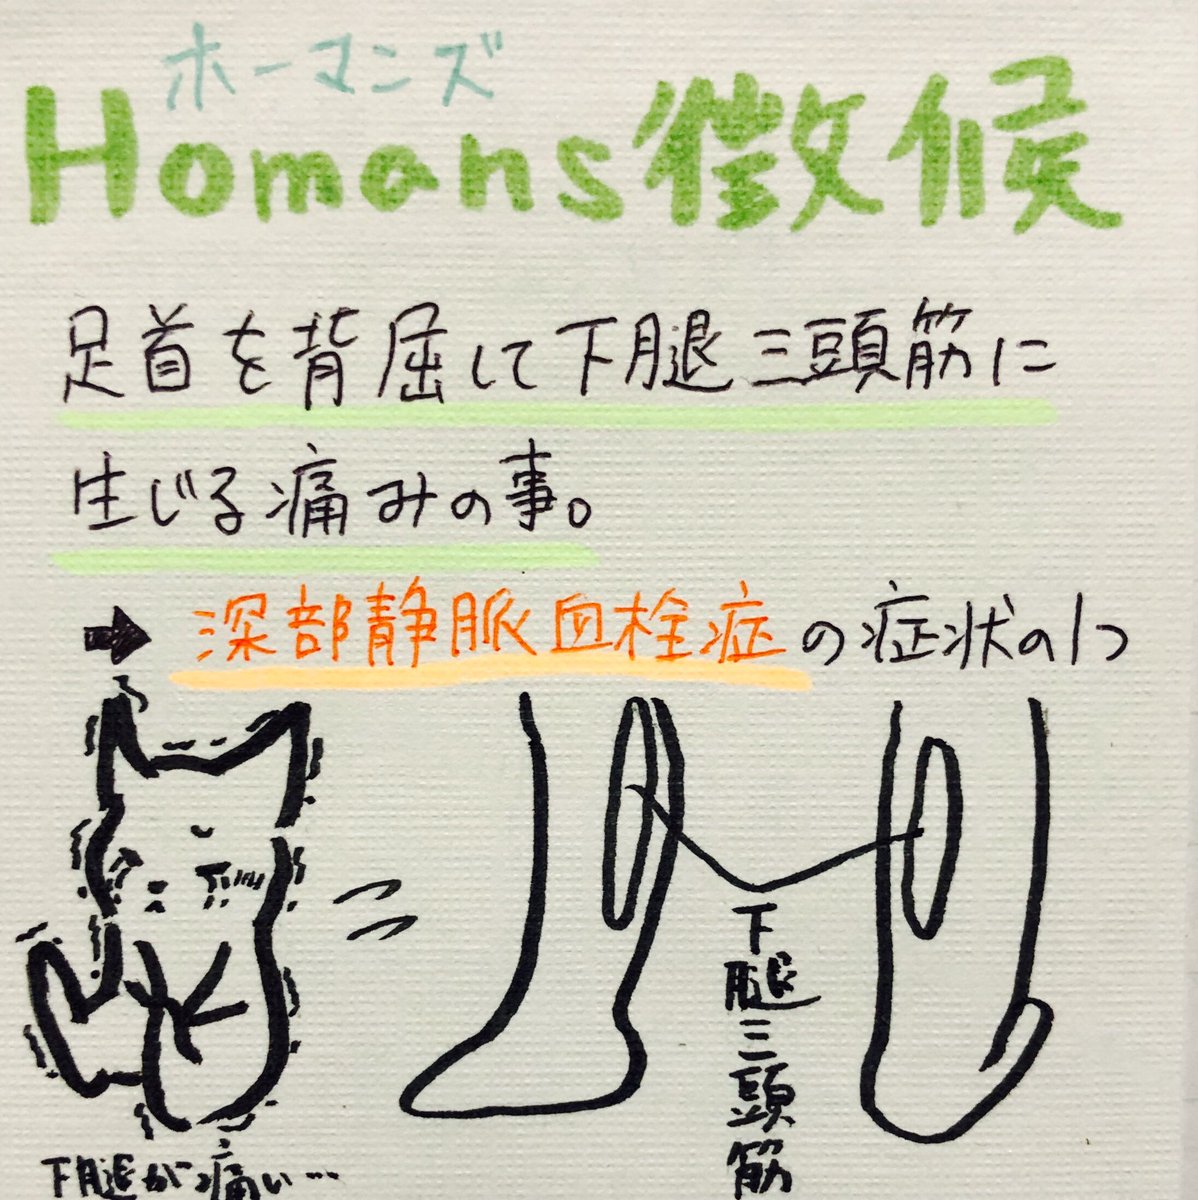 ホーマンズ
Homans徴候
足首を背屈して下腿三頭筋に
生じる痛みの事。
➡ 深部静脈血栓症の症状の1つ
下腿三頭筋
下腿が痛い…